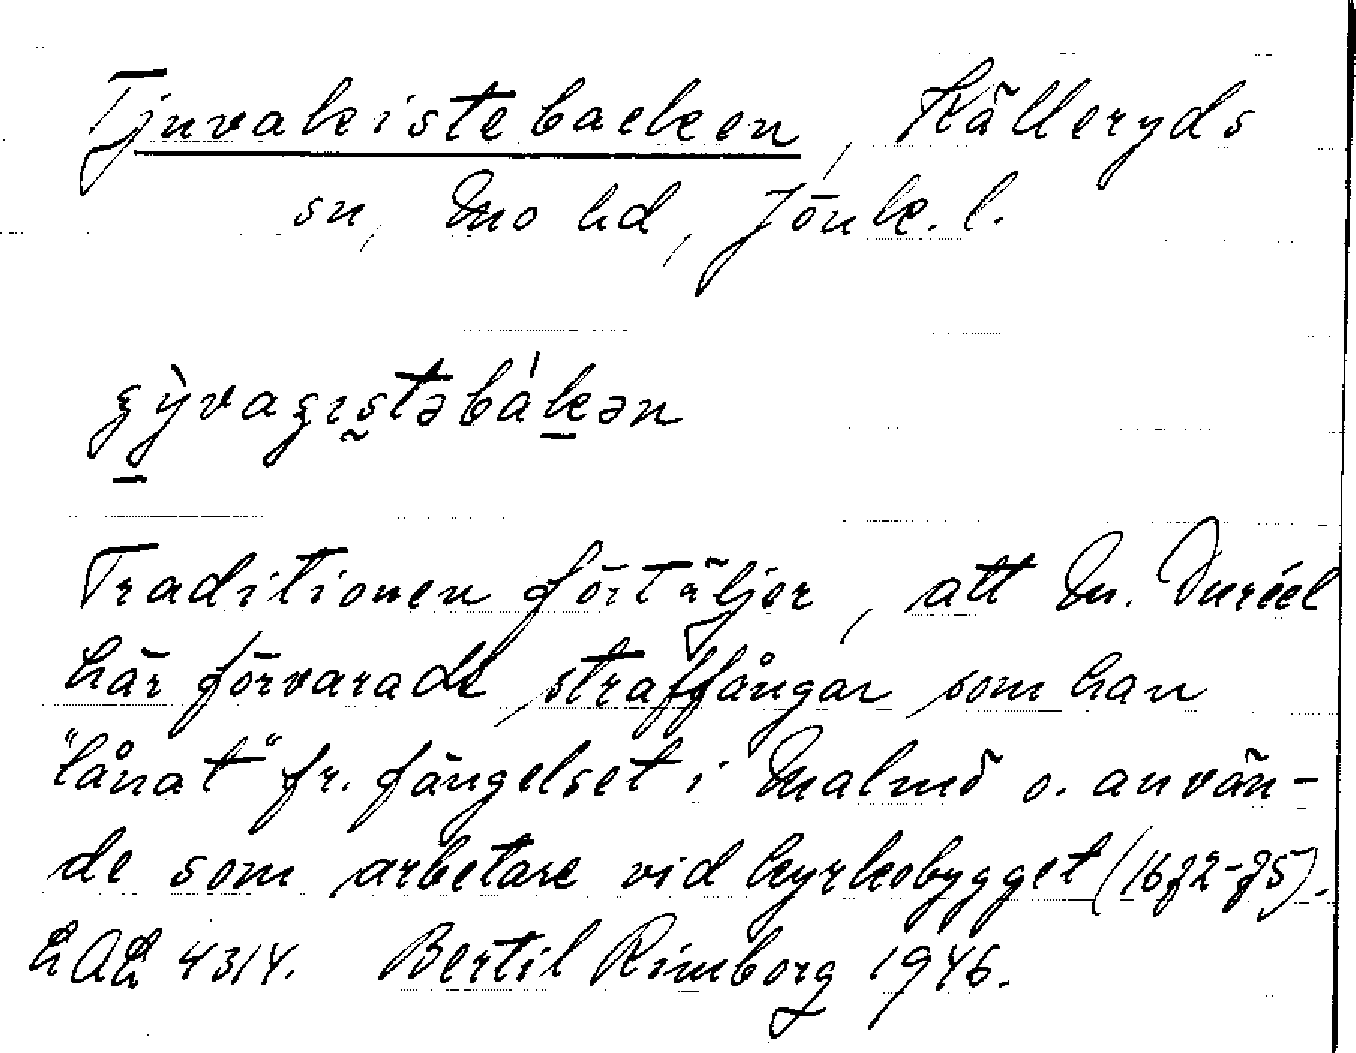 Tjuvakistebacken, Källeryds
sn, Mo hd, Jönk. l.
Traditionen förtäljer, att M. Duréel
här förvarade straffångar som han
"lånat" fr. fängelset i Malmö o. använ-
de som arbetare vid kyrkobygget (1672-75).
LAL 4314. Bertil Rimborg 1946.